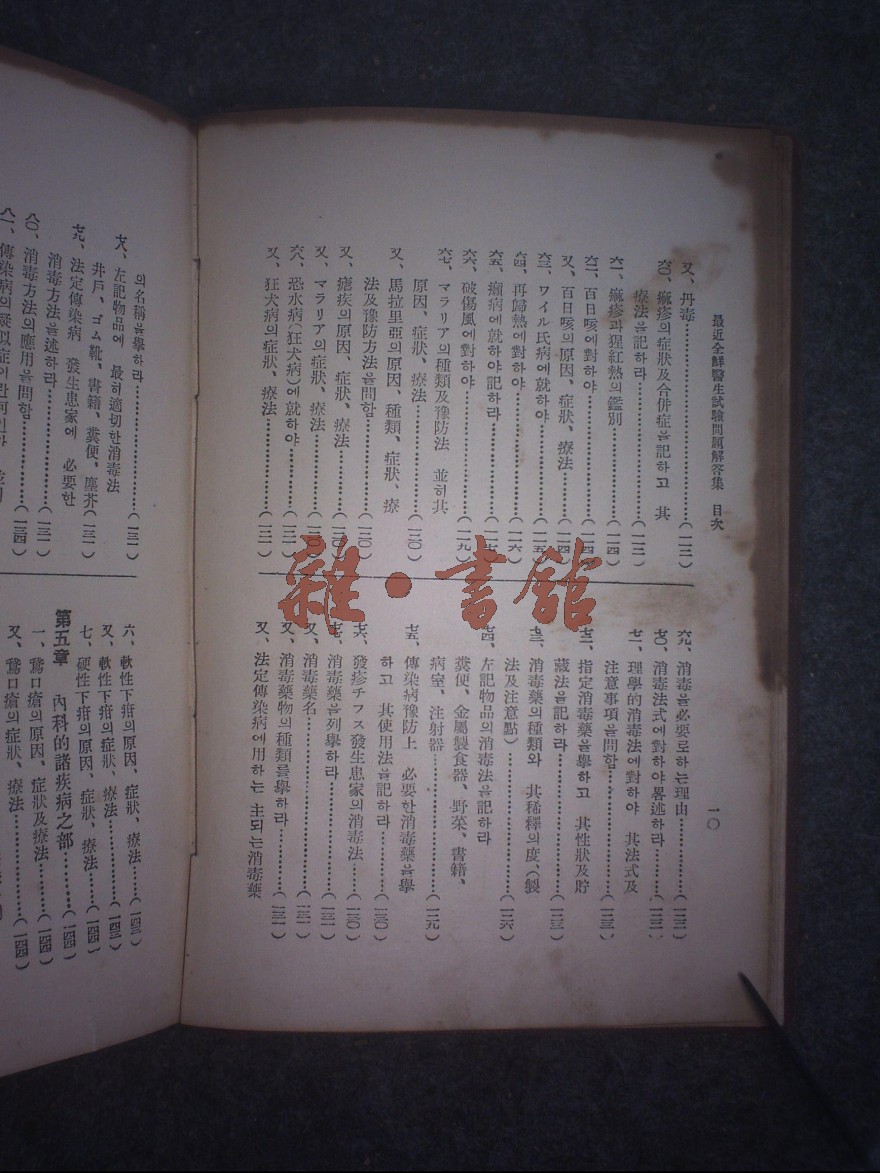 最近全鮮醫生試驗問題解答集 目次
一〇
又、丹毒……(一一三)
六〇、痲疹의症狀及合併症을記하고 其
療法을記하라……(一一三)
六一、痲疹과猩紅熱의鑑別……(一一四)
六二、百日咳에對하야……(一一四)
又、百日咳의原因、症狀、療法……(一一四)
六三、ワイル氏病에就하야……(一一五)
六四、再歸熱에對하야……(一一六)
六五、癩病에就하야記하라……
六六、破傷風에對하야……(一一九)
六七、マラリア의種類及豫防法 並히其
原因、症狀、療法……(一二〇)
又、馬拉里亞의原因、種類、症狀、療
法及豫防方法을問함……(一二〇)
又、瘧疾의原因、症狀、療法……(一二〇)
又、マラリア의症狀、療法……
六八、恐水病(狂犬病)에就하야……(一二一)
又、狂犬病의症狀、療法……(一二一)
六九、消毒을必要로하는理由……(一二二)
七〇、消毒法式에對하야畧述하라……(一二二)
七一、理學的消毒法에對하야 其法式及
注意事項을問함……(一二三)
七二、指定消毒藥을擧하고 其性狀及貯
藏法을記하라……(一二三)
七三、消毒藥의種類와 其稀釋의度、(製
法及注意點)……(一二六)
七四、左記物品의消毒法을記하라
糞便、金屬製食器、野菜、書籍、
病室、注射器……(一二九)
七五、傳染病豫防上 必要한消毒藥을擧
하고 其使用法을記하라……(一三〇)
七六、發疹チフス發生患家의消毒法……(一三〇)
七七、消毒藥을列擧하라……(一三一)
又、消毒藥名……(一三一)
又、消毒藥物의種類를擧하라……(一三一)
又、法定傳染病에用하는 主되는消毒藥
의名稱을擧하라……(一三一)
七八、左記物品에 最히適切한消毒法
井戶、ゴム靴、書籍、糞便、塵芥(一三一)
七九、法定傳染病 發生患家에 必要한
消毒方法을述하라……(一三一)
八〇、消毒方法의應用을問함……(一三四)
八一、傳染病의疑似症이란何인가
六、軟性下疳의原因、症狀、療法……(一四三)
又、軟性下疳의症狀、療法……(一四三)
七、硬性下疳의原因、症狀、療法……(一四四)
第五章 內科的諸疾病之部……(一四四)
一、鵞口瘡의原因、症狀及療法……(一四四)
又、鵞口瘡의症狀、療法……(一四四)
雜·書館